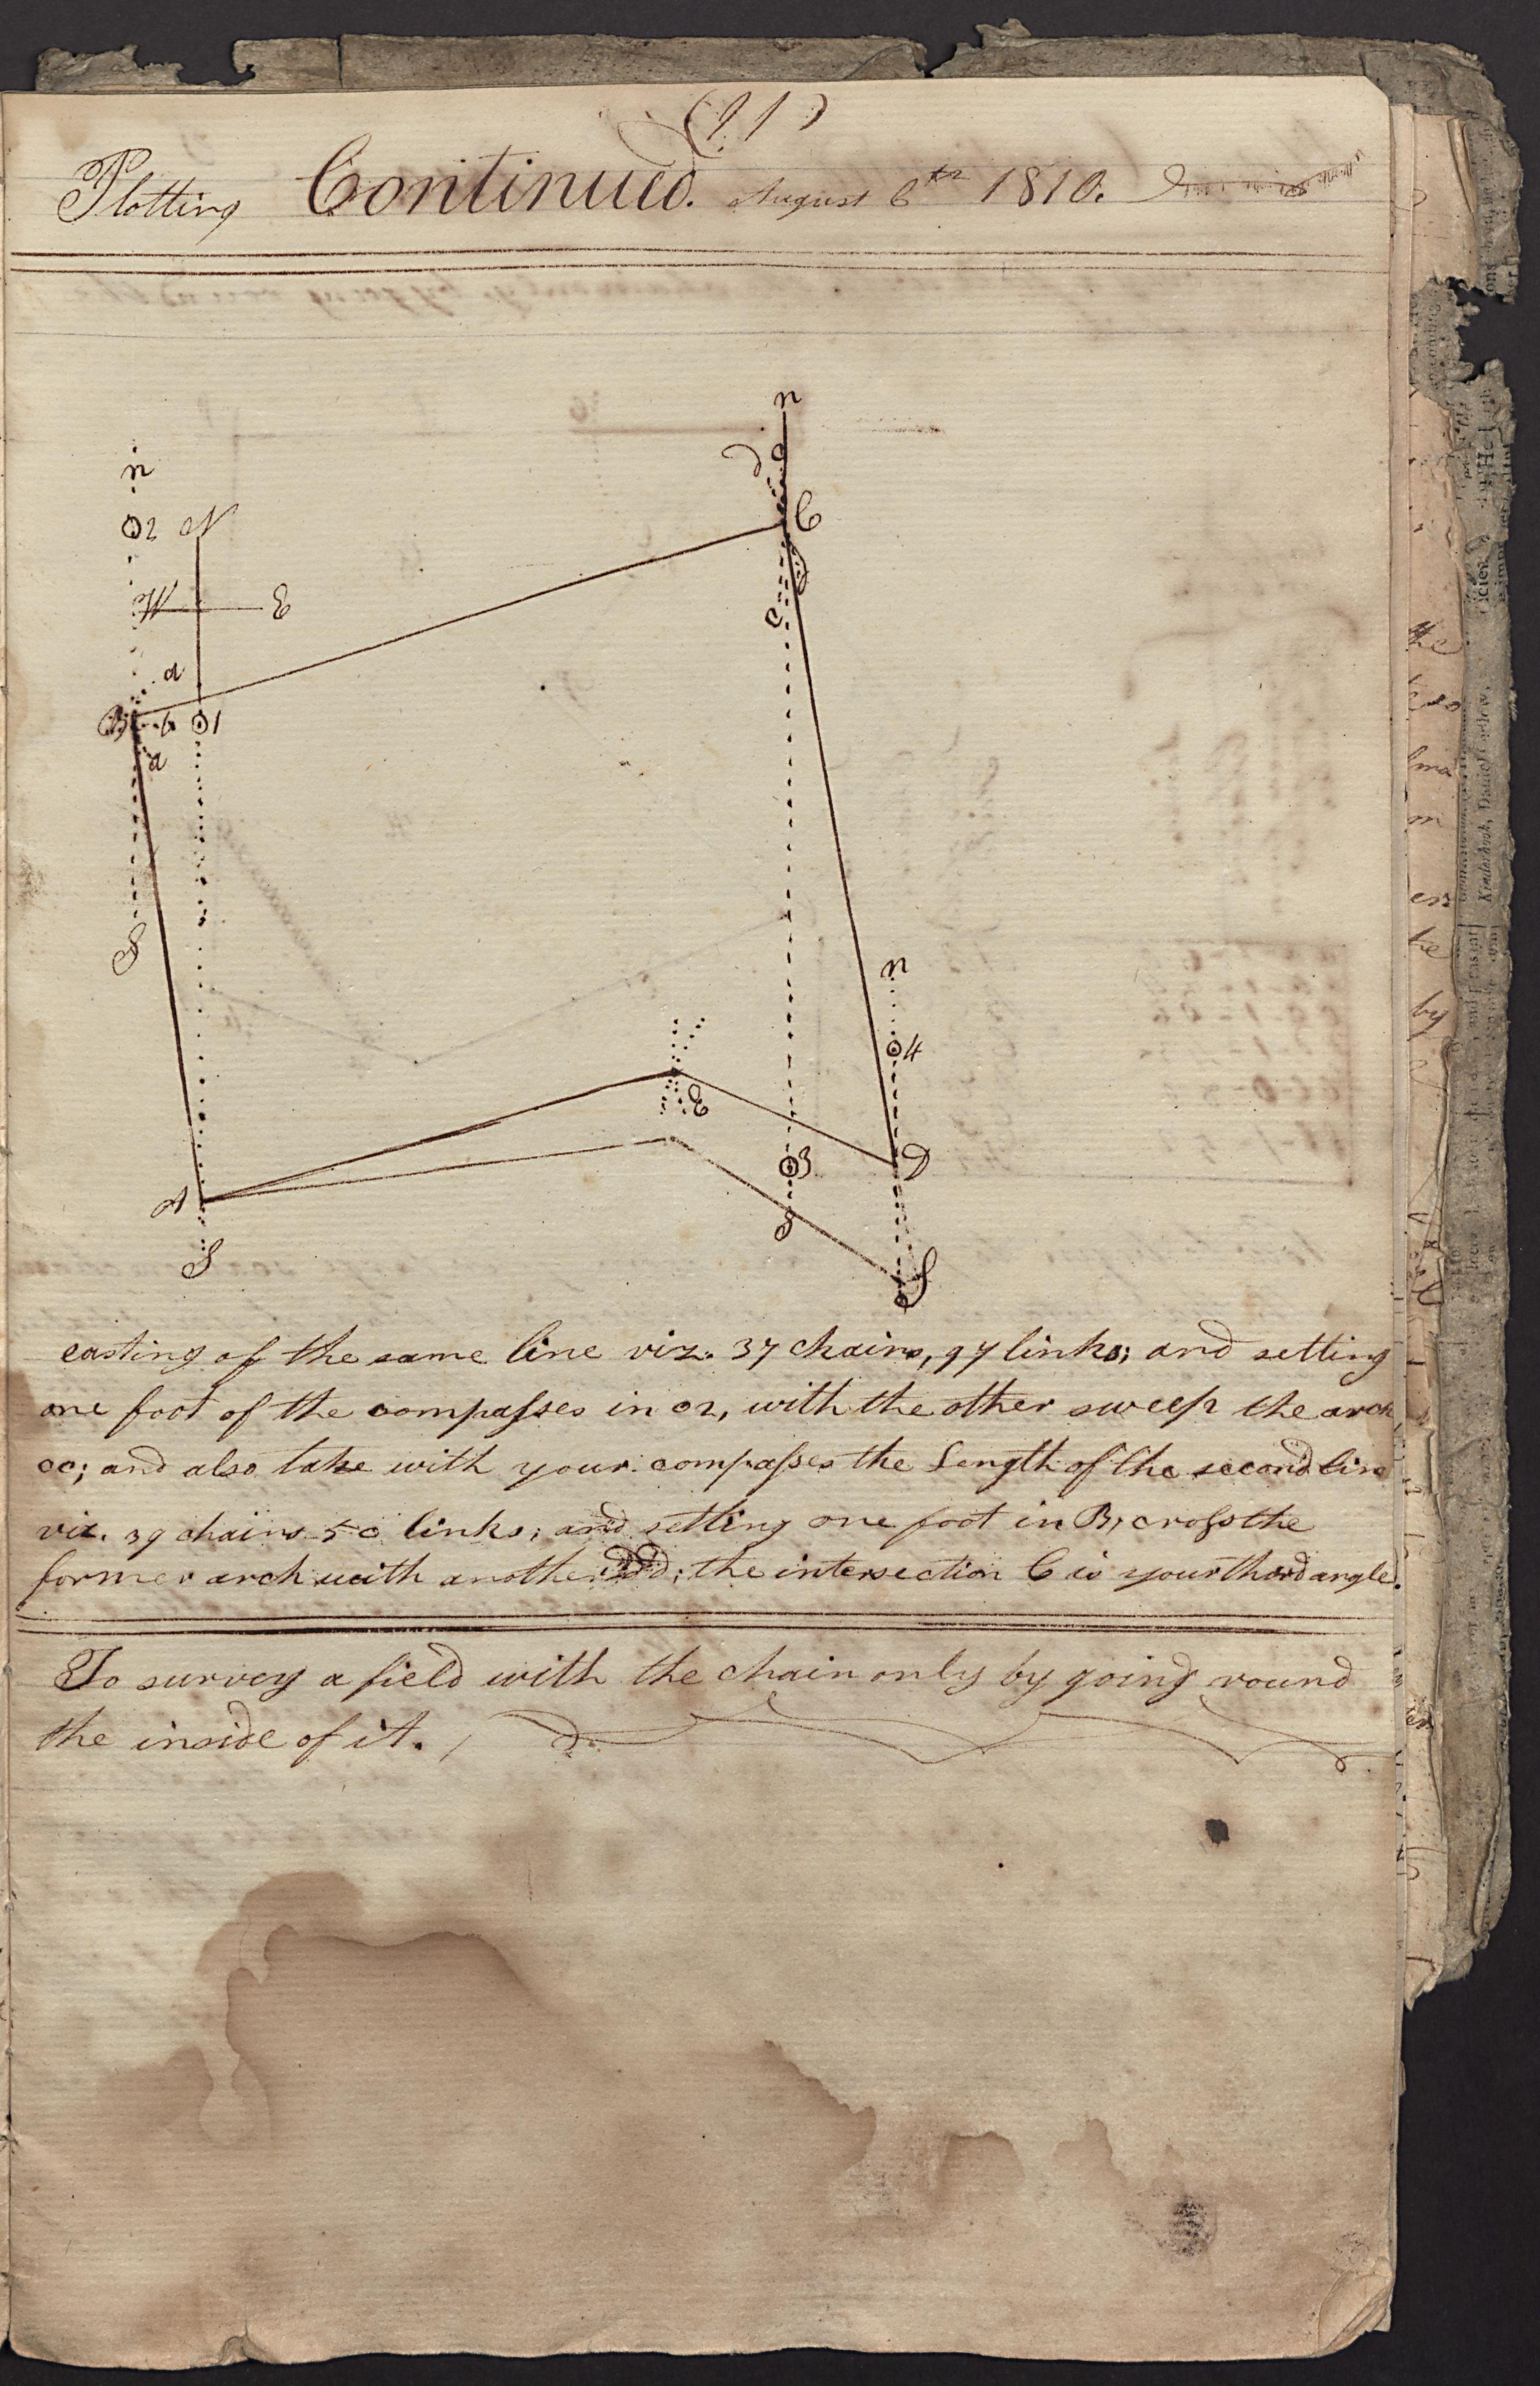 (11)
Plotting Continued. August 6th 1810.
n
n
d
C
c
O2 N
W E
a
B b O1
a
S
n
O4
E
D
O3
A
S
S
S
easting of the same line viz. 37 chains, 97 links; and setting
one foot of the compaſses in o2, with the other sweep the arch
cc; and also take with your compaſses the Length of the second line
viz. 39 chains 50 links; and setting one foot in B, croſs the
former arch with another dd; the intersection C is your third angle.
To survey a field with the chain only by going round
the inside of it.
the
ma
m
en
he
by
Kinderhook, Daniel